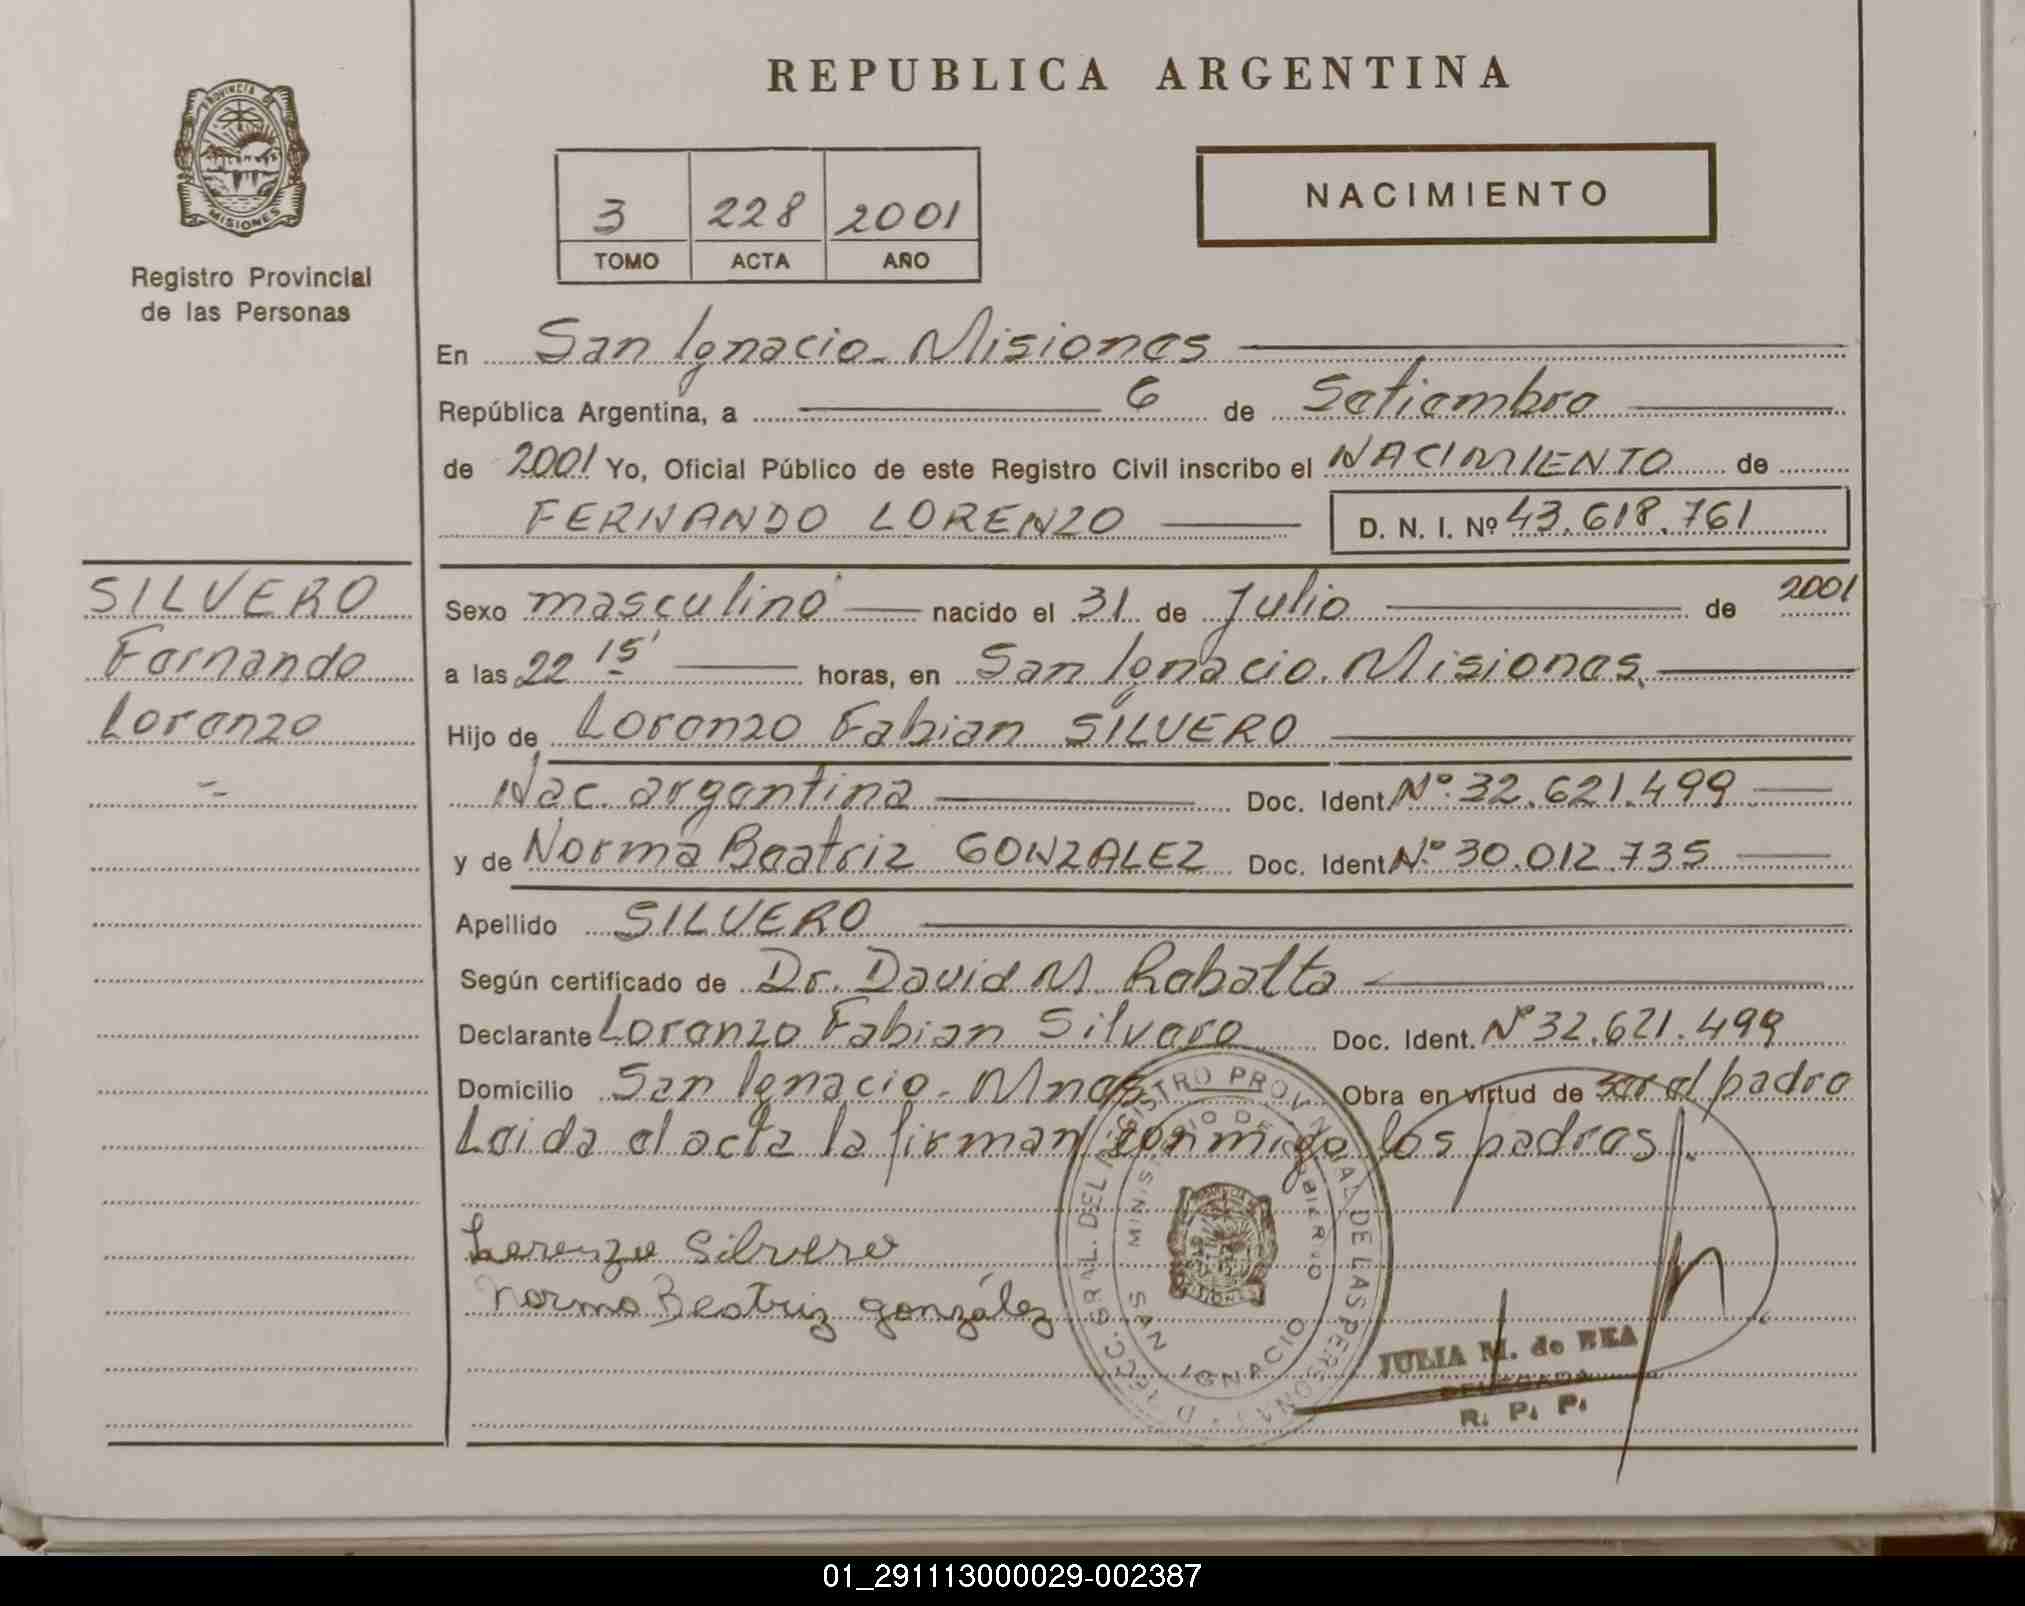 REPUBLICA ARGENTINA
PROVINCIA DE
MISIONES
Registro Provincial
de las Personas
3 228 2001
TOMO ACTA AÑO
NACIMIENTO
En San Ignacio - Misiones
República Argentina, a 6 de Setiembre
de 2001 Yo, Oficial Público de este Registro Civil inscribo el NACIMIENTO de
FERNANDO LORENZO D. N. I. Nº 43.618.761
SILVERO
Fernando
Lorenzo
Sexo masculino nacido el 31 de Julio de 2001
a las 22 15' horas, en San Ignacio. Misiones.
Hijo de Lorenzo Fabian SILVERO
Nac. argentina Doc. Ident. Nº 32.621.499
y de Norma Beatriz GONZALEZ Doc. Ident. Nº 30.012.735
Apellido SILVERO
Según certificado de Dr. David M. Rebatta
Declarante Lorenzo Fabian Silvero Doc. Ident. Nº 32.621.499
Domicilio San Ignacio - Mnes Obra en virtud de ser el padre
Leida el acta la firman conmigo los padres.
Lorenzo Silvero
Norma Beatriz gonzález
DIRECC. GRAL. DEL REGISTRO PROVINCIAL DE LAS PERSONAS
MINISTERIO DE GOBIERNO
SAN IGNACIO
JULIA M. de REA
DELEGADA
R. P. P.
01_291113000029-002387